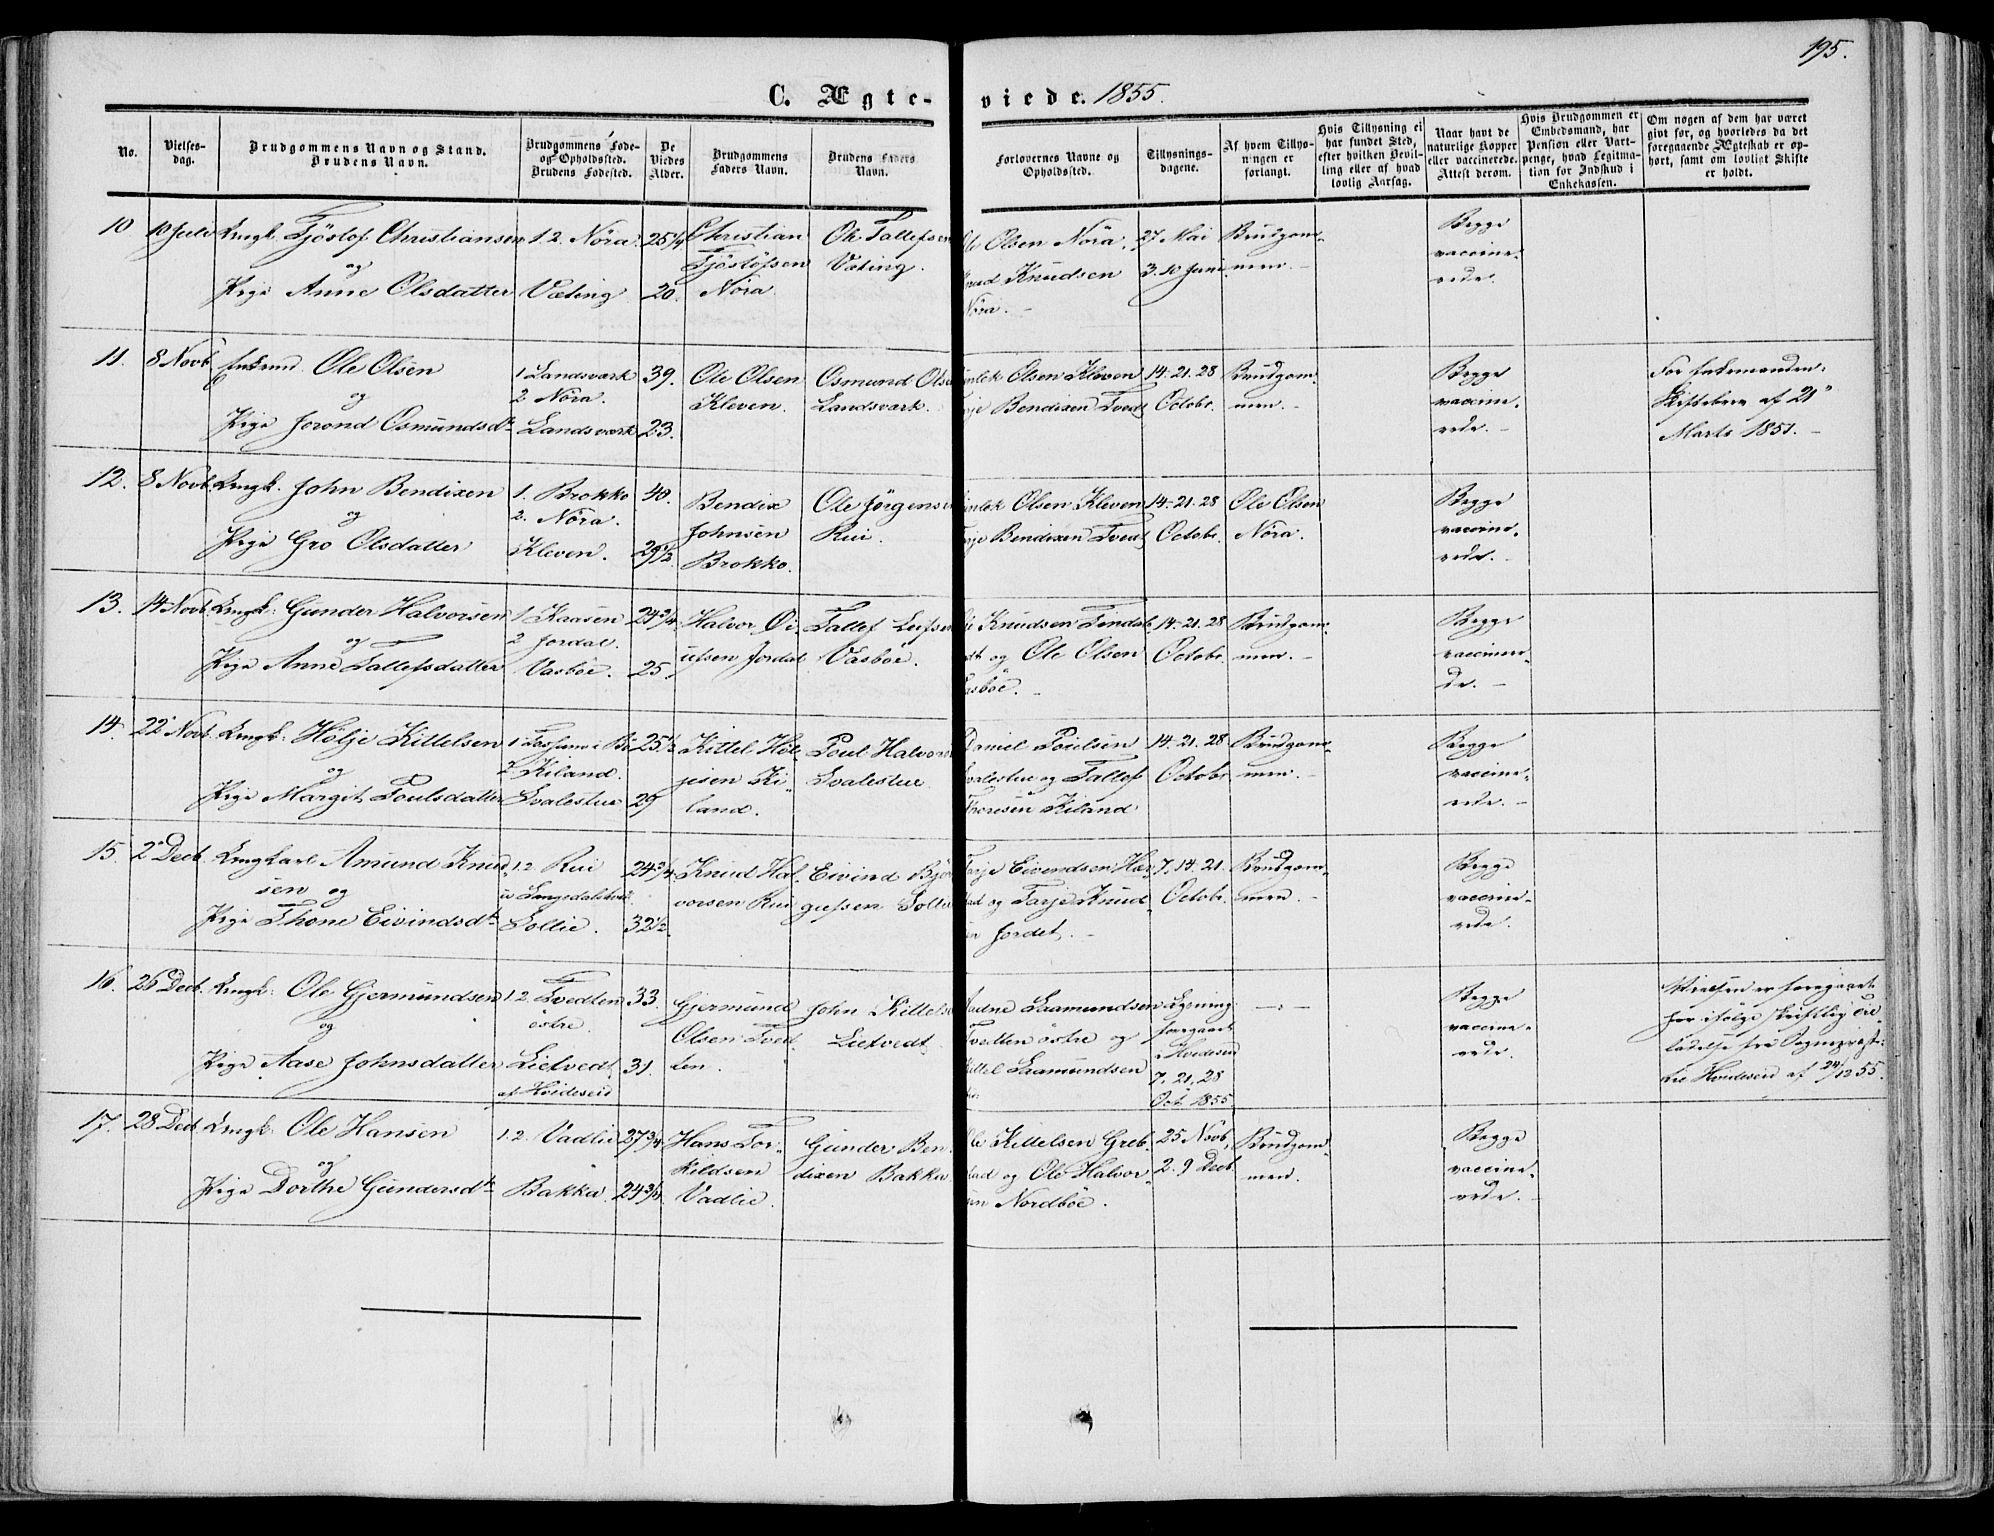 195.
C. Ægte- viede. 1855.
No.
Vielses-
dag.
Brudgommens Navn og Stand.
Brudens Navn.
Brudgommens Føde-
og Opholdsted.
Brudens Fødested.
De
Viedes
Alder.
Brudgommens
Faders Navn.
Brudens Faders
Navn.
Forlovernes Navne og
Opholdssted.
Tillysnings-
dagene.
Af hvem Tillys-
ningen er
forlangt.
Hvis Tillysning ei
har fundet Sted,
efter hvilken Bevil-
ling eller af hvad
lovlig Aarsag.
Naar havt de
naturlige Kopper
eller vaccinerede.
Attest derom.
Hvis Brudgommen er
Embedsmand, har
Pension eller Vart-
penge, hvad Legitima-
tion for Indskud i
Enkekassen.
Om nogen af dem har været
givt før, og hvorledes da det
foregaaende Ægteskab er op-
hørt, samt om lovligt Skifte
er holdt.
10 10 Juli Ungk. Tjöstof Christiansen
og
Pige Anne Olsdatter
1.2. Nöra.
Væting
25 1/4
20.
Christian
Tjöstofsen
Nöra.
Ole Tallefsen
Væting.
Ole Olsen Nöra,
Knud Knudsen
Nöra. -
27 Mai
3. 10 Juni
Brudgom-
men. -
Begge
vaccine-
rede.
11. 8 Novb. Enkemd. Ole Olsen
og
Pige Jorond Osmundsdtr
1 Landsværk
2 Nöra.
Landsværk
39.
23.
Ole Olsen
Kleven.
Osmund Olse
Landsværk.
Olsen Kleven
Bendixen Tvedt
14. 21. 28
Octobr.
Brudgom-
men. -
Begge
vaccine-
rede. -
For Enkemanden:
Skiftebrev af 21
Marts 1851. -
12. 8 Novb. Ungk. John Bendixen
og
Pige Gro Olsdatter
1. Brokko
2. Nöra.
Kleven.
40.
29 1/2
Bendix
Johnsen
Brokko.
Ole Jörgensen
Rui.
Olsen Kleven
Bendixen Tvedt
14. 21. 28
Octobr.
Ole Olsen
Nöra.
Begge
vaccine-
rede. -
13. 14 Novb. Ungk: Gunder Halvorsen
og
Pige Anne Tallefsdatter
1 Kaasen
2 Jordal.
Vasböe.
24 3/4
25.
Halvor Ei-
ufsen Jordal
Tallef Leifsen
Vasböe.
Knudsen Tindal
og Ole Olsen
Vasböe. -
14. 21. 28
Octobr.
Brudgom-
men. -
Begge
vaccinere-
de. -
14. 22 Novb. Ungk: Hölje Kittelsen
og
Pige Margit Poulsdatter
2 Kiland.
Svalestue
25 1/2
29
Kittel Höl-
jesen Ki-
land.
Poul Halvors
Svalestue
Daniel Poulsen
Svalestue og Tallef
Thoresen Kiland
14. 21. 28
Octobr.
Brudgom-
men. -
Begge
vaccine-
rede. -
15. 2 Decb. Ungkarl Amund Knud-
sen og
Pige Thone Eivindsdtr
1.2. Rui
Sollie.
24 3/4
32 1/2.
Knud Hal-
vorsen Rui
Eivind Björ
gufsen Sollie
Tarje Eivendsen
og Tarje Knud-
Jordet. -
7. 14. 21.
Octobr.
Brudgom-
men. -
Begge
vaccine-
rede.
16. 26 Decb. Ungk: Ole Gjermundsen
og
Pige Aase Johnsdatter
1.2. Tvedten
östre.
Lietvedt
af Hvideseid
33.
31.
Gjermund
Olsen Tved-
ten.
John Kittelse
Lietvedt
Aadne Saamundsen
Tvedten östre og
Kittel Saamundsen
Lysning
foregaaet
i Hvideseid
7. 21. 28
Oct. 1855
-:-
Begge
vaccine-
rede.
Vielsen er foregaaet
her ifölge skriftlig
ladelse fra Sognepræst
til Hvideseid af 24/12 55.
17. 28 Decb. Ungk: Ole Hansen
og
Pige Dorthe Gundersdtr
1.2. Vadlie
Bakka.
27 3/4
24 3/4.
Hans Tor-
kildsen
Vadlie.
Gunder Ben-
dixen Bakka
Ole Kittelsen Greb-
stad og Ole Halvor-
sen Nordböe.
25 Novb.
2. 9 Decb.
Brudgom-
men.
Begge
vaccine-
rede. -